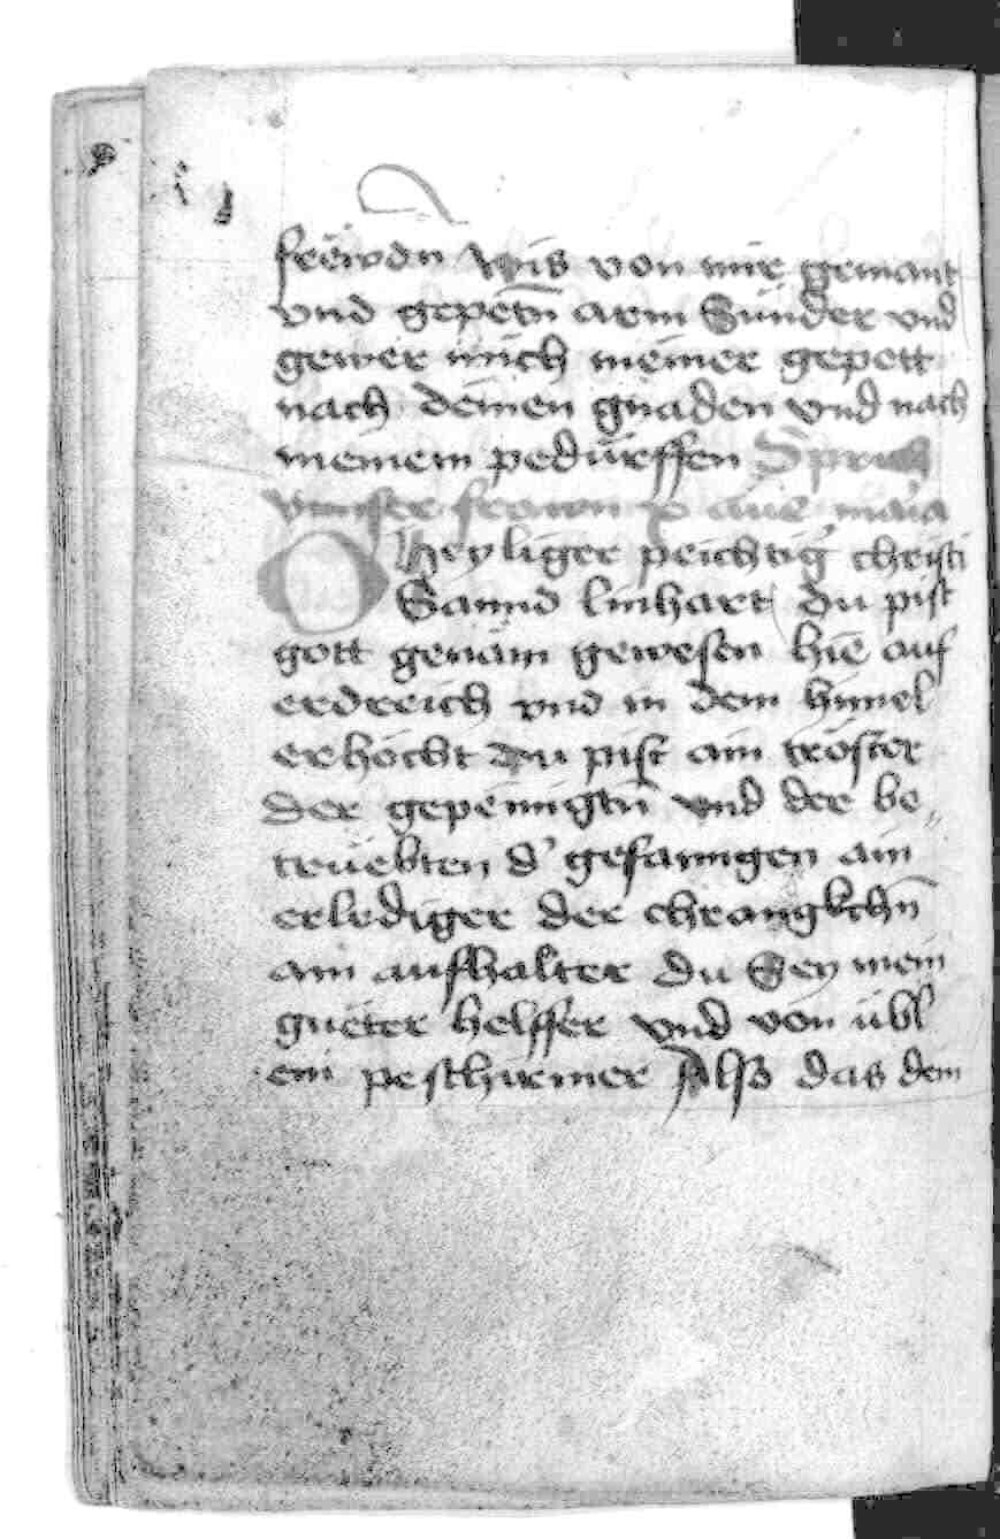 frëwdn wis von mir gemant
vnd gepetn̄ arm Sünder vnd
gewer mich meiner gepett
nach deinen gnaden vnd nach
meinem pedürffen Sprich
vnnser frawn x aue maīa
O Heyliger peichtig' christi
Sannd linhart du pist
gott genäm gewesen hie auf
erdreich vnd in dem himel
erhöcht du pist ain tröster
der gepeinigtn̄ vnd der be„
trüebten d' gefanngen ain
erlediger der chrangkchn̄
ain aufhalter du Sey mein
güeter helffer vnd von übl
ein peschirmer Alsß das dem